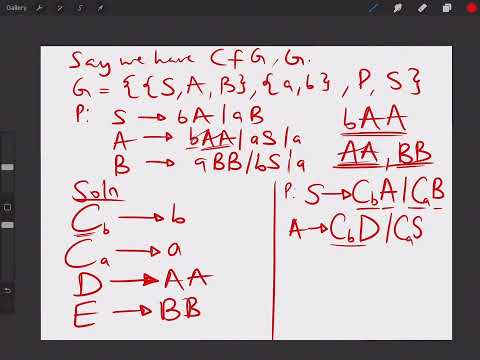 Gallery
Say we have CfG, G.
G = {{S, A, B}, {a, b}, P, S}
P: S → bA / aB
A → bAA / aS / a
B → aBB / bS / a
bAA
AA, BB
Soln
C_b → b
C_a → a
D → AA
E → BB
P: S → C_bA / C_aB
A → C_bD / C_aS